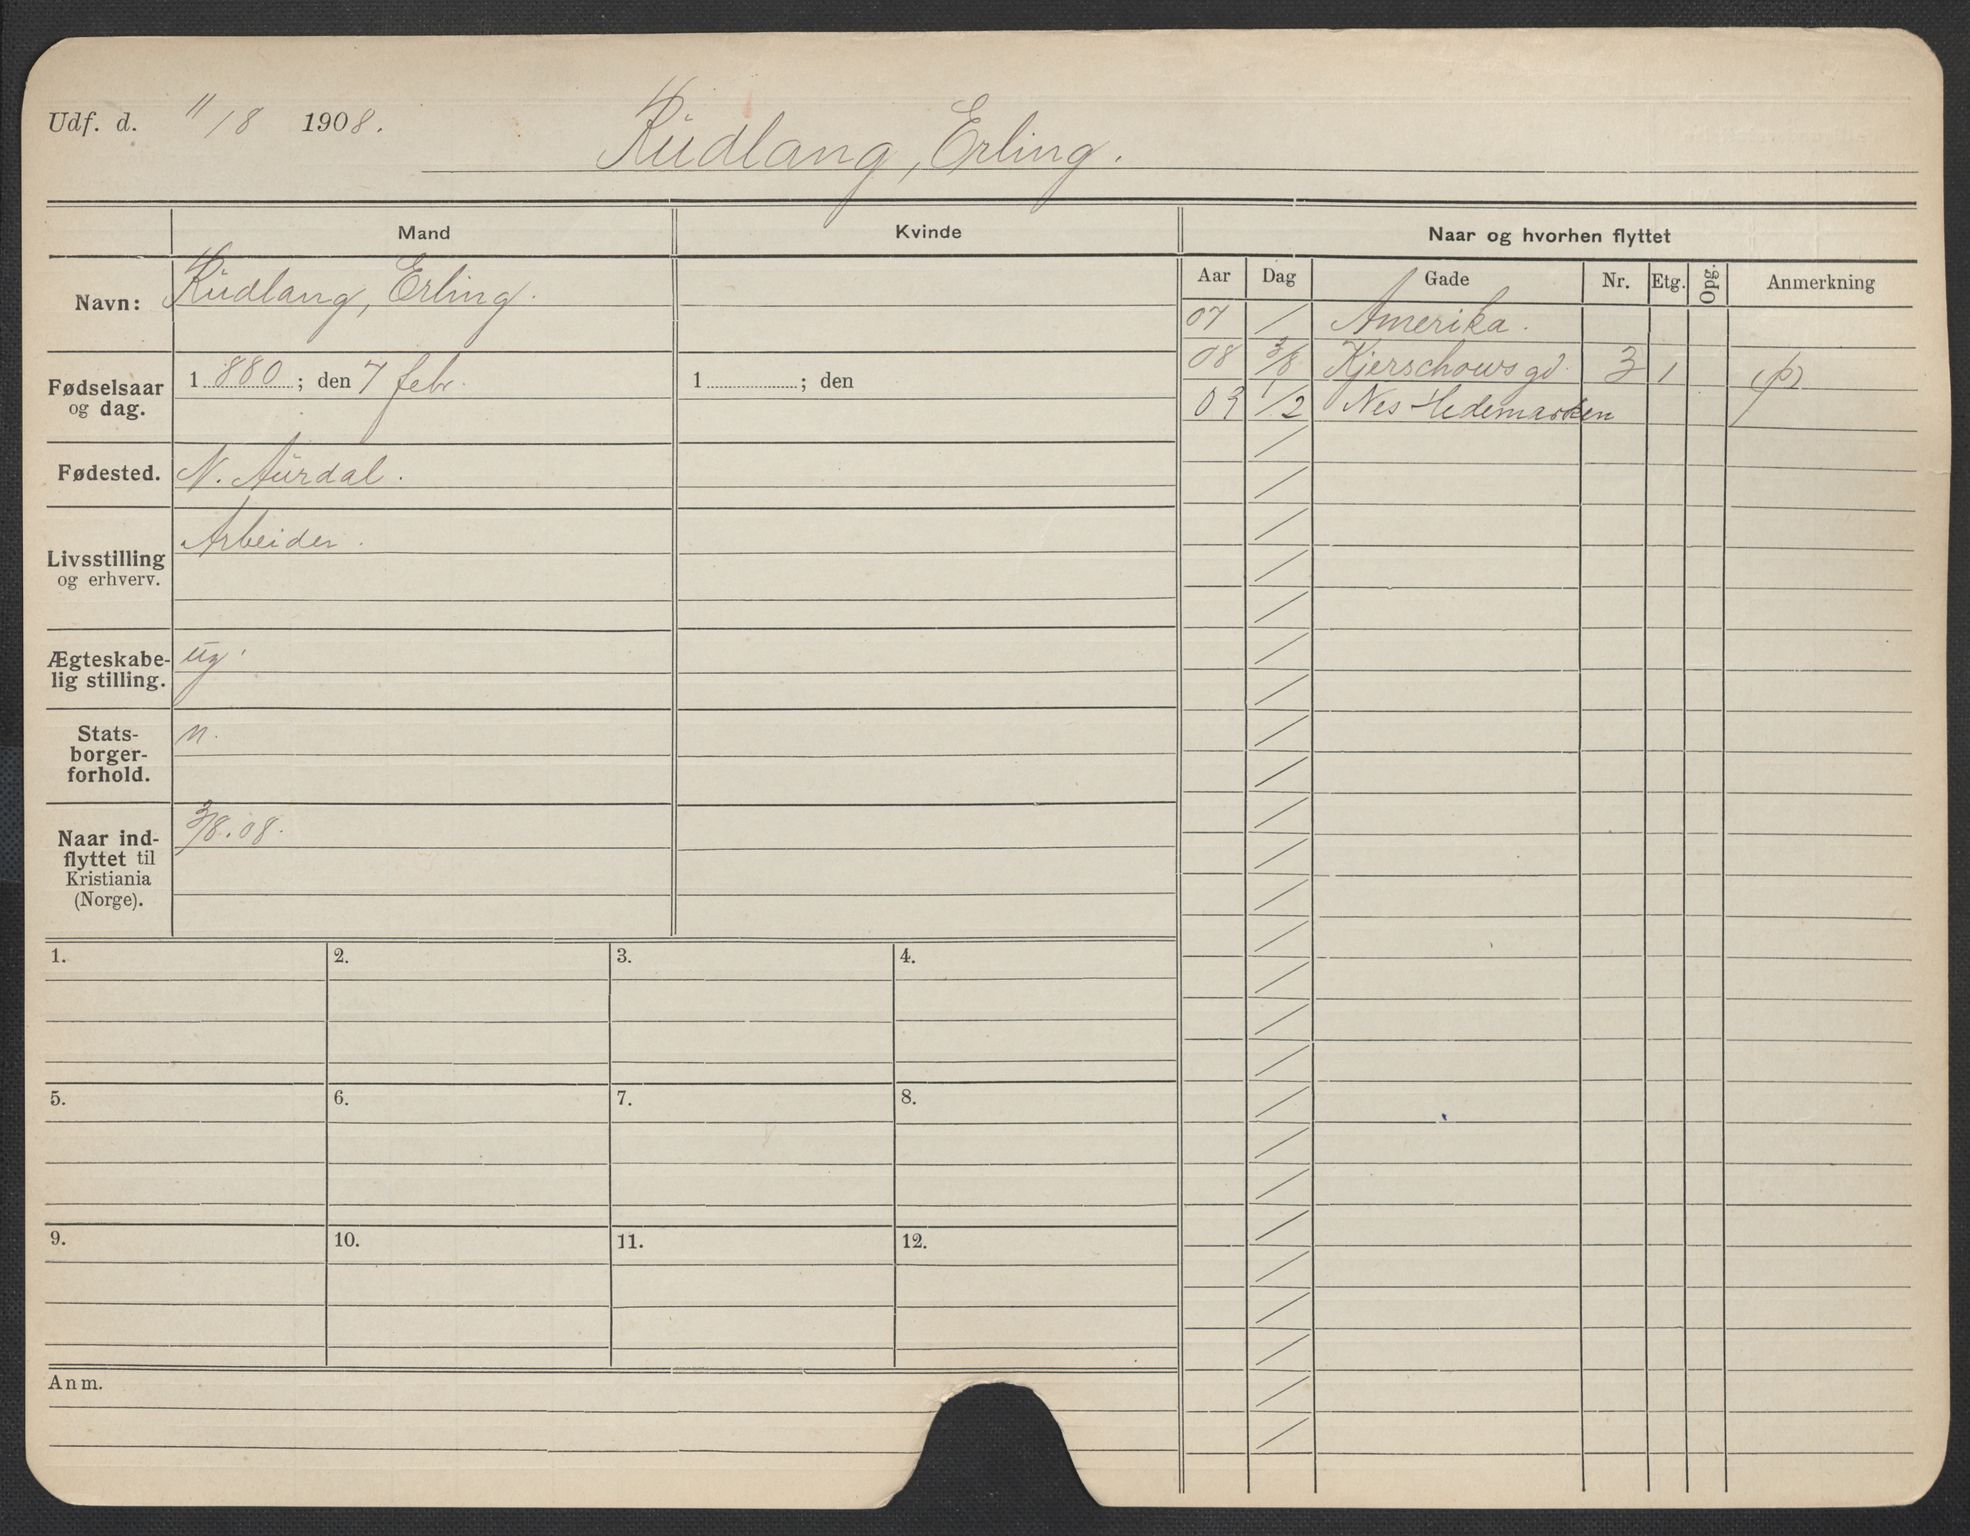 Udf. d. 11/8 1908.
Rudlang, Erling.
Mand
Kvinde
Naar og hvorhen flyttet
Navn: Rudlang, Erling.
Aar Dag Gade Nr. Etg. Opg. Anmerkning
07 / Amerika.
08 3/8 Kjerschowsgd. 3 1
09 1/2 Nes Hedemarken
Fødselsaar og dag. 1880; den 7 febr.
1 ; den
Fødested. N. Aurdal.
Livsstilling og erhverv. Arbeider.
Ægteskabe-
lig stilling. ug.
Stats-
borger-
forhold. n.
Naar ind-
flyttet til
Kristiania
(Norge). 3/8.08.
1. 2. 3. 4.
5. 6. 7. 8.
9. 10. 11. 12.
Anm.